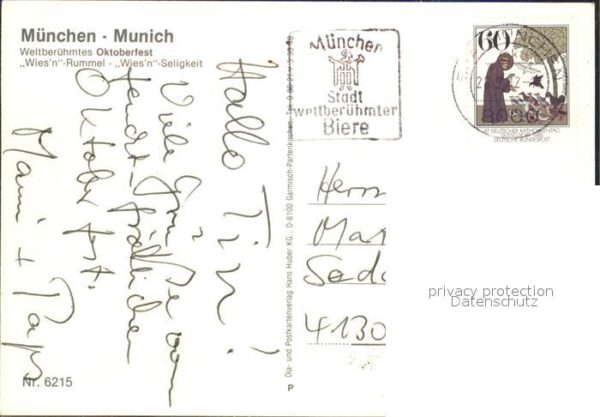 München - Munich
Weltberühmtes Oktoberfest
„Wies'n“-Rummel - „Wies'n“-Seligkeit
Hallo Tim!
Viele Grüße vom
feucht-fröhlichen
Oktoberfest.
Mami + Paps
Nr. 6215
Dia- und Postkartenverlag Hans Huber KG., D-8100 Garmisch-Partenkirchen
P
München
Stadt
weltberühmter
Biere
60
DEUTSCHER KATHOLIKENTAG
DEUTSCHE BUNDESPOST
Herrn
4130
privacy protection
Datenschutz